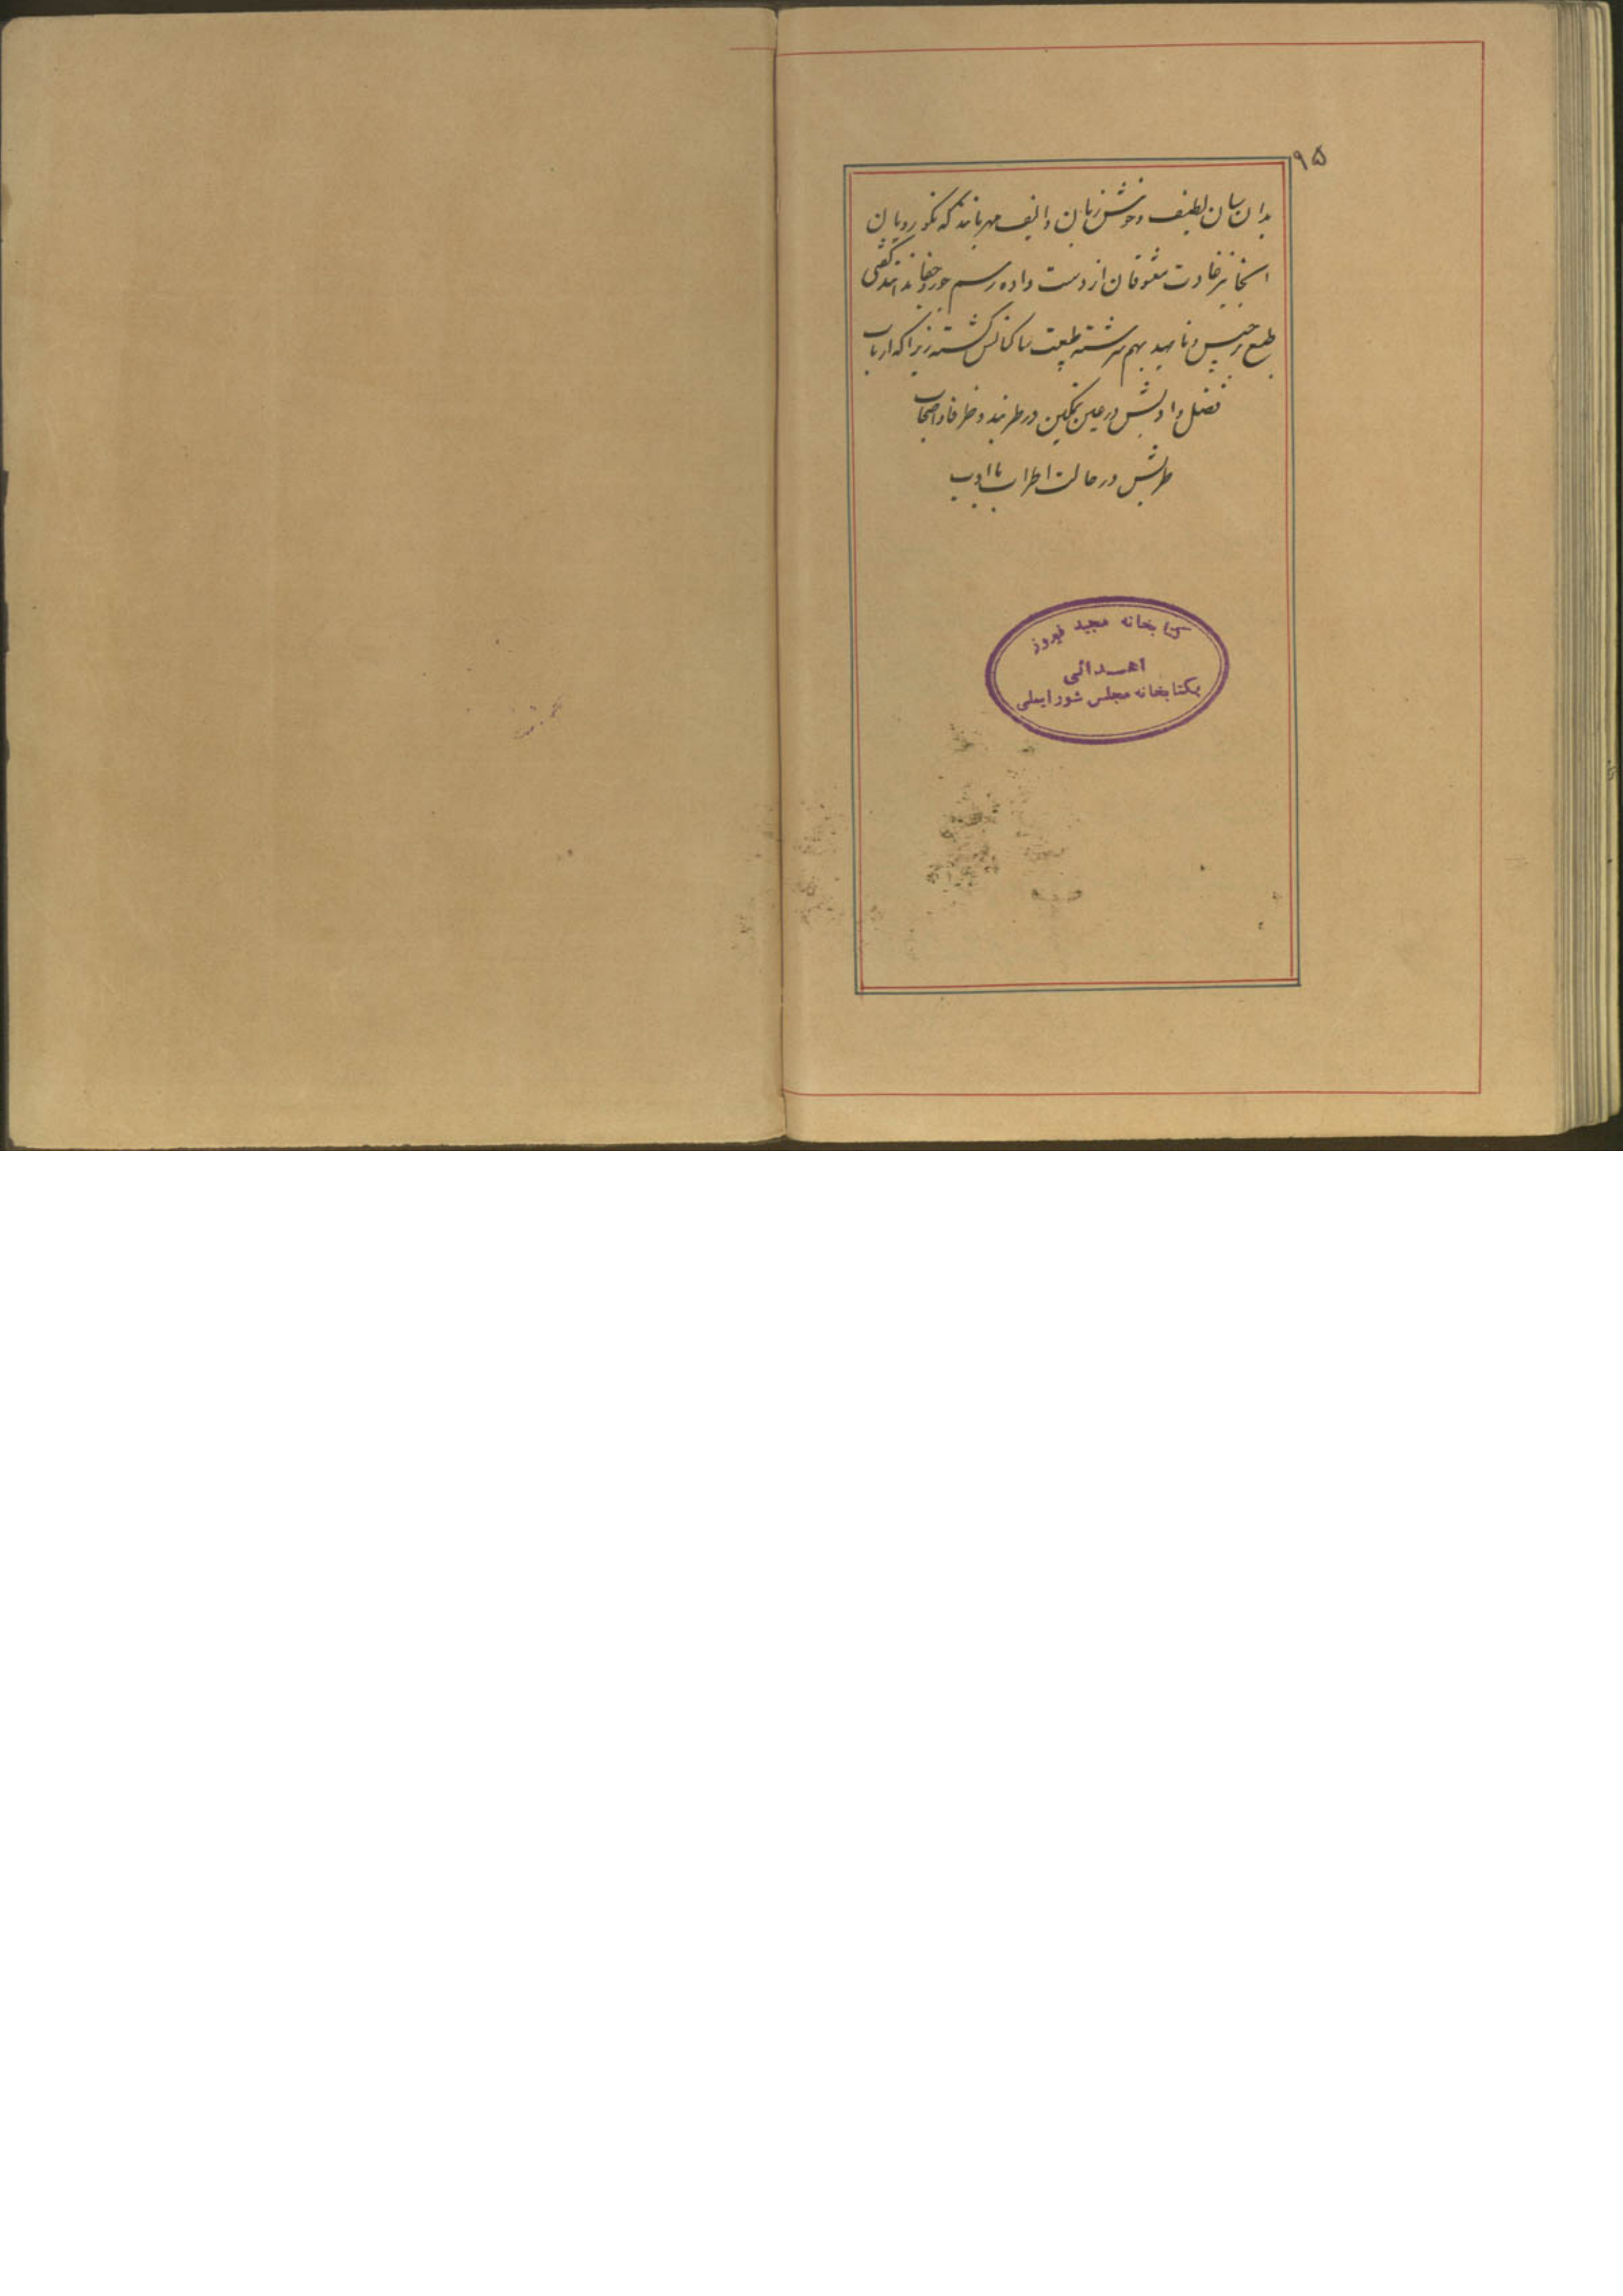 ۹۵
بدان سان لطیف و خوش زبان و الیف مهربانند که نکو رویان
انجا نیز عادت معشوقان از دست داده رسم جور و جفا ندانند گفتی
طبع برجیس و ناهید بهم سرشته طبیعت ساکنانش گشته زیرا که ارباب
فضل و ادبش در عین تمکین در طربند و ظرفا و اصحاب
طربش در حالت اطراب با ادب
کتابخانه مجید فیروز
اهدائی
بکتابخانه مجلس شورایملی